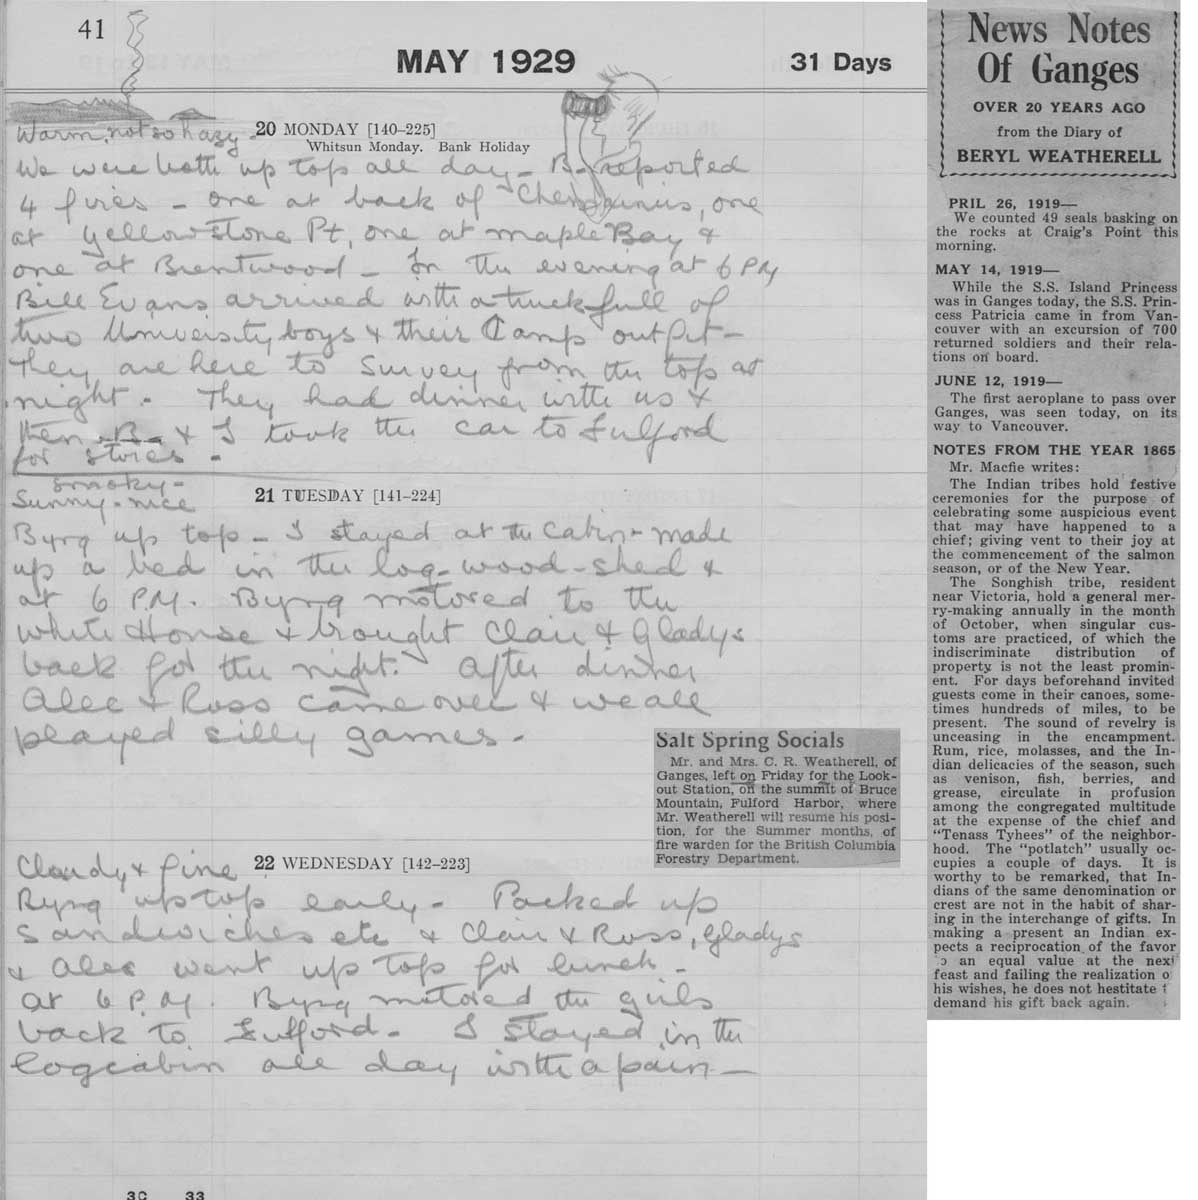 41
MAY 1929
31 Days
Warm, not so hazy -
20 MONDAY [140–225]
Whitsun Monday. Bank Holiday
We were both up top all day - B. reported
4 fires - one at back of Chemainus, one
at Yellowstone Pt, one at maple Bay &
one at Brentwood - In the evening at 6 PM
Bill Evans arrived with a truck full of
two University boys & their Camp outfit -
They are here to survey from the top at
night. They had dinner with us &
then B- & I took the car to Fulford
for stores -
smoky -
Sunny - nice
21 TUESDAY [141–224]
Byrq up top - I stayed at the Cabin - made
up a bed in the log-wood-shed &
at 6 P.M. Byrq motored to the
White House & brought Clair & Gladys
back for the night. After dinner
Alec & Ross came over & we all
played silly games -
Salt Spring Socials
Mr. and Mrs. C. R. Weatherell, of
Ganges, left on Friday for the Look-
out Station, on the summit of Bruce
Mountain, Fulford Harbor, where
Mr. Weatherell will resume his posi-
tion, for the Summer months, of
fire warden for the British Columbia
Forestry Department.
Cloudy & fine
22 WEDNESDAY [142–223]
Byrq up top early - Packed up
sandwiches etc & Clair & Ross, Gladys
& Alec went up top for lunch -
at 6 P.M. Byrq motored the girls
back to Fulford - I stayed in the
logcabin all day with a pain -
30 33
News Notes
Of Ganges
OVER 20 YEARS AGO
from the Diary of
BERYL WEATHERELL
PRIL 26, 1919—
We counted 49 seals basking on
the rocks at Craig's Point this
morning.
MAY 14, 1919—
While the S.S. Island Princess
was in Ganges today, the S.S. Prin-
cess Patricia came in from Van-
couver with an excursion of 700
returned soldiers and their rela-
tions on board.
JUNE 12, 1919—
The first aeroplane to pass over
Ganges, was seen today, on its
way to Vancouver.
NOTES FROM THE YEAR 1865
Mr. Macfie writes:
The Indian tribes hold festive
ceremonies for the purpose of
celebrating some auspicious event
that may have happened to a
chief; giving vent to their joy at
the commencement of the salmon
season, or of the New Year.
The Songhish tribe, resident
near Victoria, hold a general mer-
ry-making annually in the month
of October, when singular cus-
toms are practiced, of which the
indiscriminate distribution of
property is not the least promin-
ent. For days beforehand invited
guests come in their canoes, some-
times hundreds of miles, to be
present. The sound of revelry is
unceasing in the encampment.
Rum, rice, molasses, and the In-
dian delicacies of the season, such
as venison, fish, berries, and
grease, circulate in profusion
among the congregated multitude
at the expense of the chief and
"Tenass Tyhees" of the neighbor-
hood. The "potlatch" usually oc-
cupies a couple of days. It is
worthy to be remarked, that In-
dians of the same denomination or
crest are not in the habit of shar-
ing in the interchange of gifts. In
making a present an Indian ex-
pects a reciprocation of the favor
o an equal value at the next
feast and failing the realization o
his wishes, he does not hestitate t
demand his gift back again.